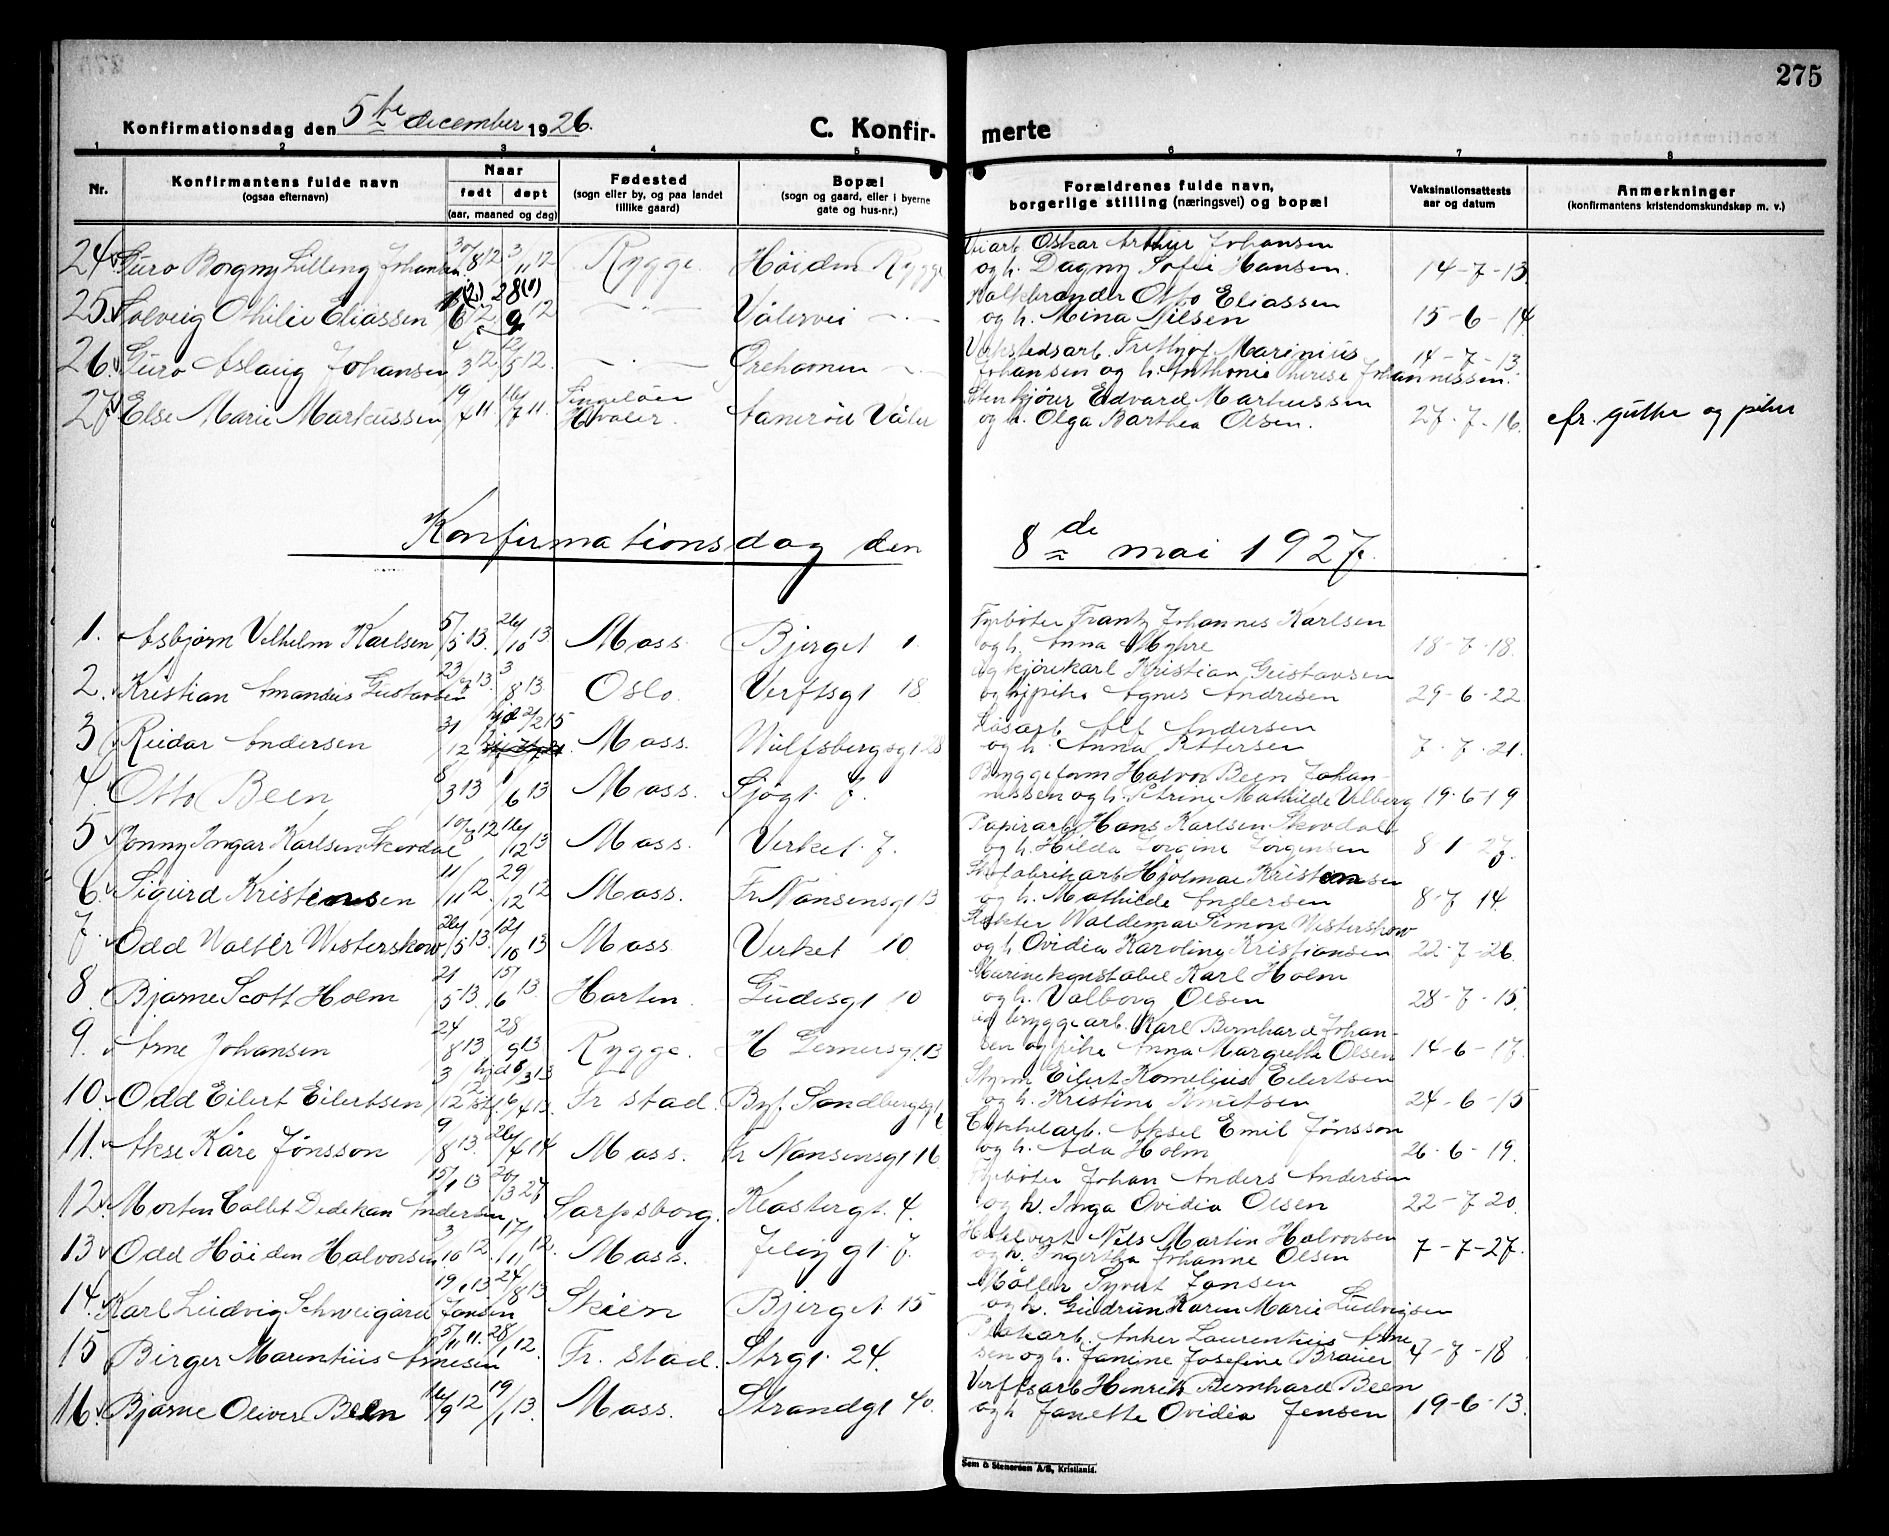 275
Konfirmationsdag den 5te december 1926.
C. Konfirmerte
1 2 3 4 5 6 7 8
Nr.
Konfirmantens fulde navn
(ogsaa efternavn)
Naar
født døpt
(aar, maaned og dag)
Fødested
(sogn eller by, og paa landet
tillike gaard)
Bopæl
(sogn og gaard, eller i byerne
gate og hus-nr.)
Forældrenes fulde navn,
borgerlige stilling (næringsvei) og bopæl
Vaksinationsattests
aar og datum
Anmerkninger
(konfirmantens kristendomskundskap m. v.)
24 Guro Borgny Lilleng Johansen 30/8 12 3/11 12 Rygge Høiden Rygge Oskar Arthur Johansen
og h. Dagny Sofie Hansen. 14-7-13
25. Solveig Othilie Eliassen Vålervei Kalkbrander Otto Eliassen
og h. Mina Nilsen 15-6-14
26. Guro Aslaug Johansen Ørehamen Marinius
Johansen og h. Anthonie Therese Johannissen. 14-7-13
27 Else Marie Markussen 19/4 11 16/7 11 Singeløen
Hvaler. Våler Edvard Markussen
og h. Olga Barthea Olsen. 27-7-16.
Konfirmationsdag den 8de mai 1927.
1. Asbjørn Vilhelm Karlsen 5/5 13. 26/10 13 Moss. Bjerget 1 Fyrbøter Frantz Johannes Karlsen
og h. Anna Myhre 18-7-18.
2. Kristian Amandus Gustavsen 3/8 13 Oslo. Verftsgt 18 Kristian Gustavsen
Agnes Andresen 29-6-22
3 Reidar Andersen 31/12 Moss. Wulfsbergsgt 28 Løsarb Alf Andersen
og h. Anna Pettersen 7-7-21.
4. Otto Been 8/3 13 1/6 13 Moss. Sjøgt. 7. Bryggeform Halvor Been Johan-
nessen og h. Petrine Mathilde Vilberg 19-6-19
5 Jonny Ingar Karlsen Skovdal 10/8 12 Moss. Verket 7. Papirarb Hans Karlsen Skovdal
og h. Hilda Jorgine Jorgensen 8 1 27.
6. Sigurd Kristensen 11/11 12 29/12 12 Moss. Fr Nansensgt 13 Hjalmar Kristensen
og h. Mathilde Andersen 8-7 14
7. Odd Walter Westerskow 26/5 13. 12/10 13 Moss Verket 10 Waldemar Simon Westerskow
og h Ovidia Karoline Kristiansen 22-7-26.
8. Bjarne Scott Holm 21/5 13. 15/6 13 Horten. Gudesgt 10 Marinekonstabel Karl Holm
og h. Valborg Olsen 28-7-15.
9. Arne Johansen 24/8 13 28/9 13 Rygge. H Gernersgt. 13 bryggearb. Karl Bernhard Johan-
sen og pike Anna Margrethe Olsen 14-6-17
10. Odd Eilert Eilertsen Fr stad. Eilert Kornelius Eilertsen
og h. Kristine Knutsen 24-6-15
11. Akse Kåre Jønsson 9/8 13. 26/4 14 Moss. Fr Nansensgt 16 Aksel Emil Jønsson
og h. Ada Holm 26-6-19.
12. Morten Collet Dedekan Andersen 15/1 13 20/3 27 Sarpsborg. Klostergt. 4. Fyrbøter Johan Anders Andersen
og h. Inga Ovidia Olsen 22-7 20.
13 Odd Høiden Halvorsen 3/10 12. 17/11 12. Moss. Jeløygt. 7. Nils Martin Halvorsen
og h. Ingertha Johanne Olsen 7-7-27.
14. Karl Ludvig Schweigård Jansen 19/1 13 24/8 13 Skien Bjerget 15 Møller Syvert Jansen
og h. Gudrun Karen Marie Ludvigsen
15 Birger Marentius Arnesen 5/11 11. 28/1 12. Fr. stad. Strgt. 24. Anker Laurentius Arne
sen og h. Janine Josefine Brauer 4-7-18
16. Bjarne Oliver Been 16/9 12 19/1 13. Moss. Strandgt 40. Verftsarb Henrik Bernhard Been
og h Janette Ovidia Jensen 19-6-13.
Sem & Stenersen A/S, Kristiania.